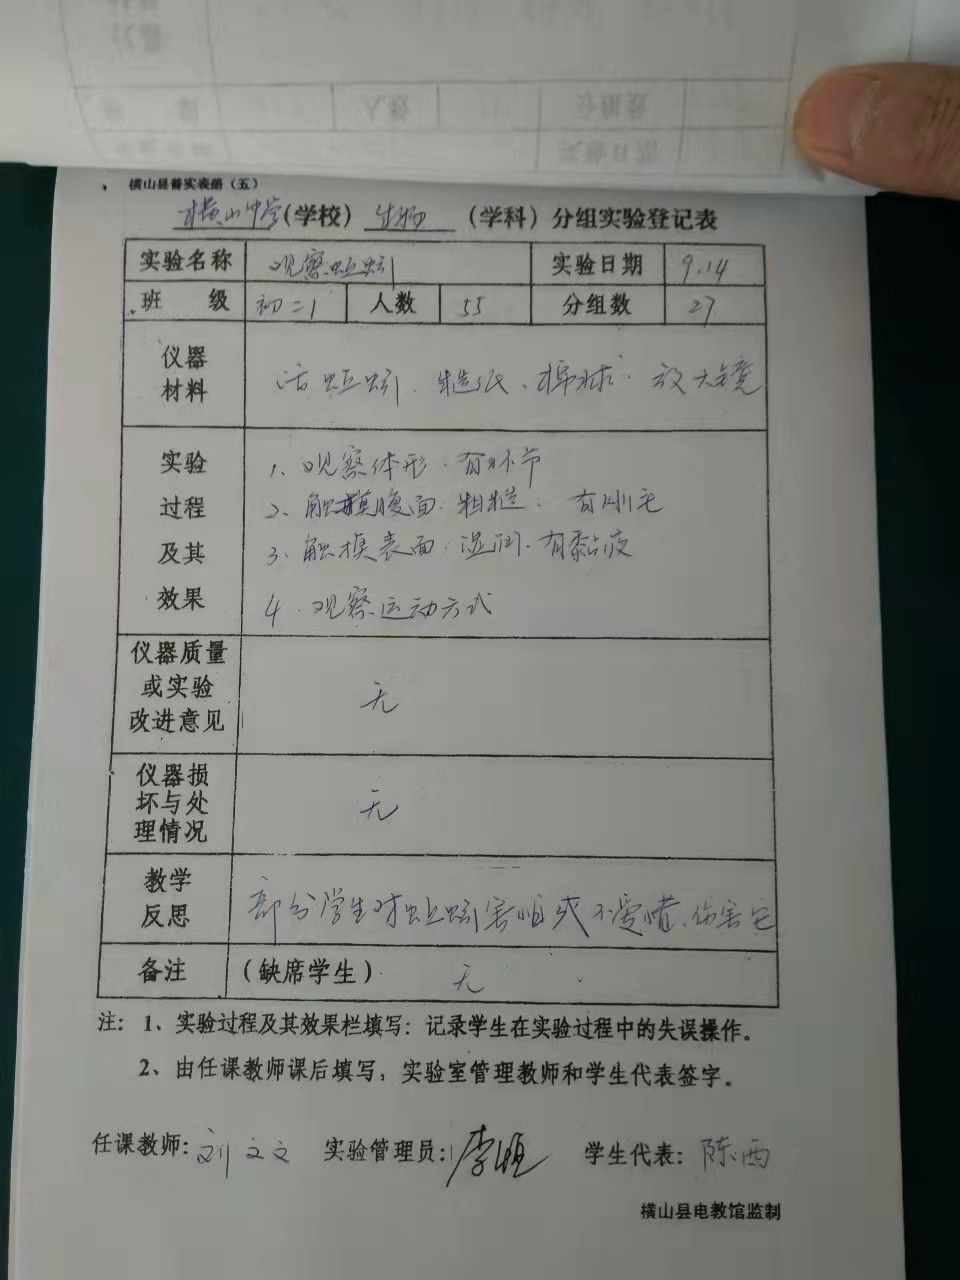 横山县普实表册（五）
横山中学(学校) 生物 (学科) 分组实验登记表
实验名称 观察蚯蚓 实验日期 9.14
班 级 初二1 人数 55 分组数 27
仪器
材料
活蚯蚓、糙纸、棉球、放大镜
实验
过程
及其
效果
1、观察体形、有环节
2、触摸腹面、粗糙、有刚毛
3、触摸表面、湿润、有黏液
4、观察运动方式
仪器质量
或实验
改进意见
无
仪器损
坏与处
理情况
无
教学
反思
部分学生对蚯蚓害怕或不爱惜、伤害它
备注 (缺席学生) 无
注: 1、实验过程及其效果栏填写: 记录学生在实验过程中的失误操作。
2、由任课教师课后填写, 实验室管理教师和学生代表签字。
任课教师: 刘文文 实验管理员: 学生代表: 陈西
横山县电教馆监制